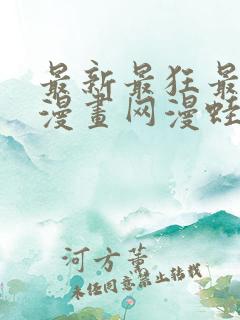 最新最狂最
漫畫网漫蛙
河方薰
未经同意禁止转载